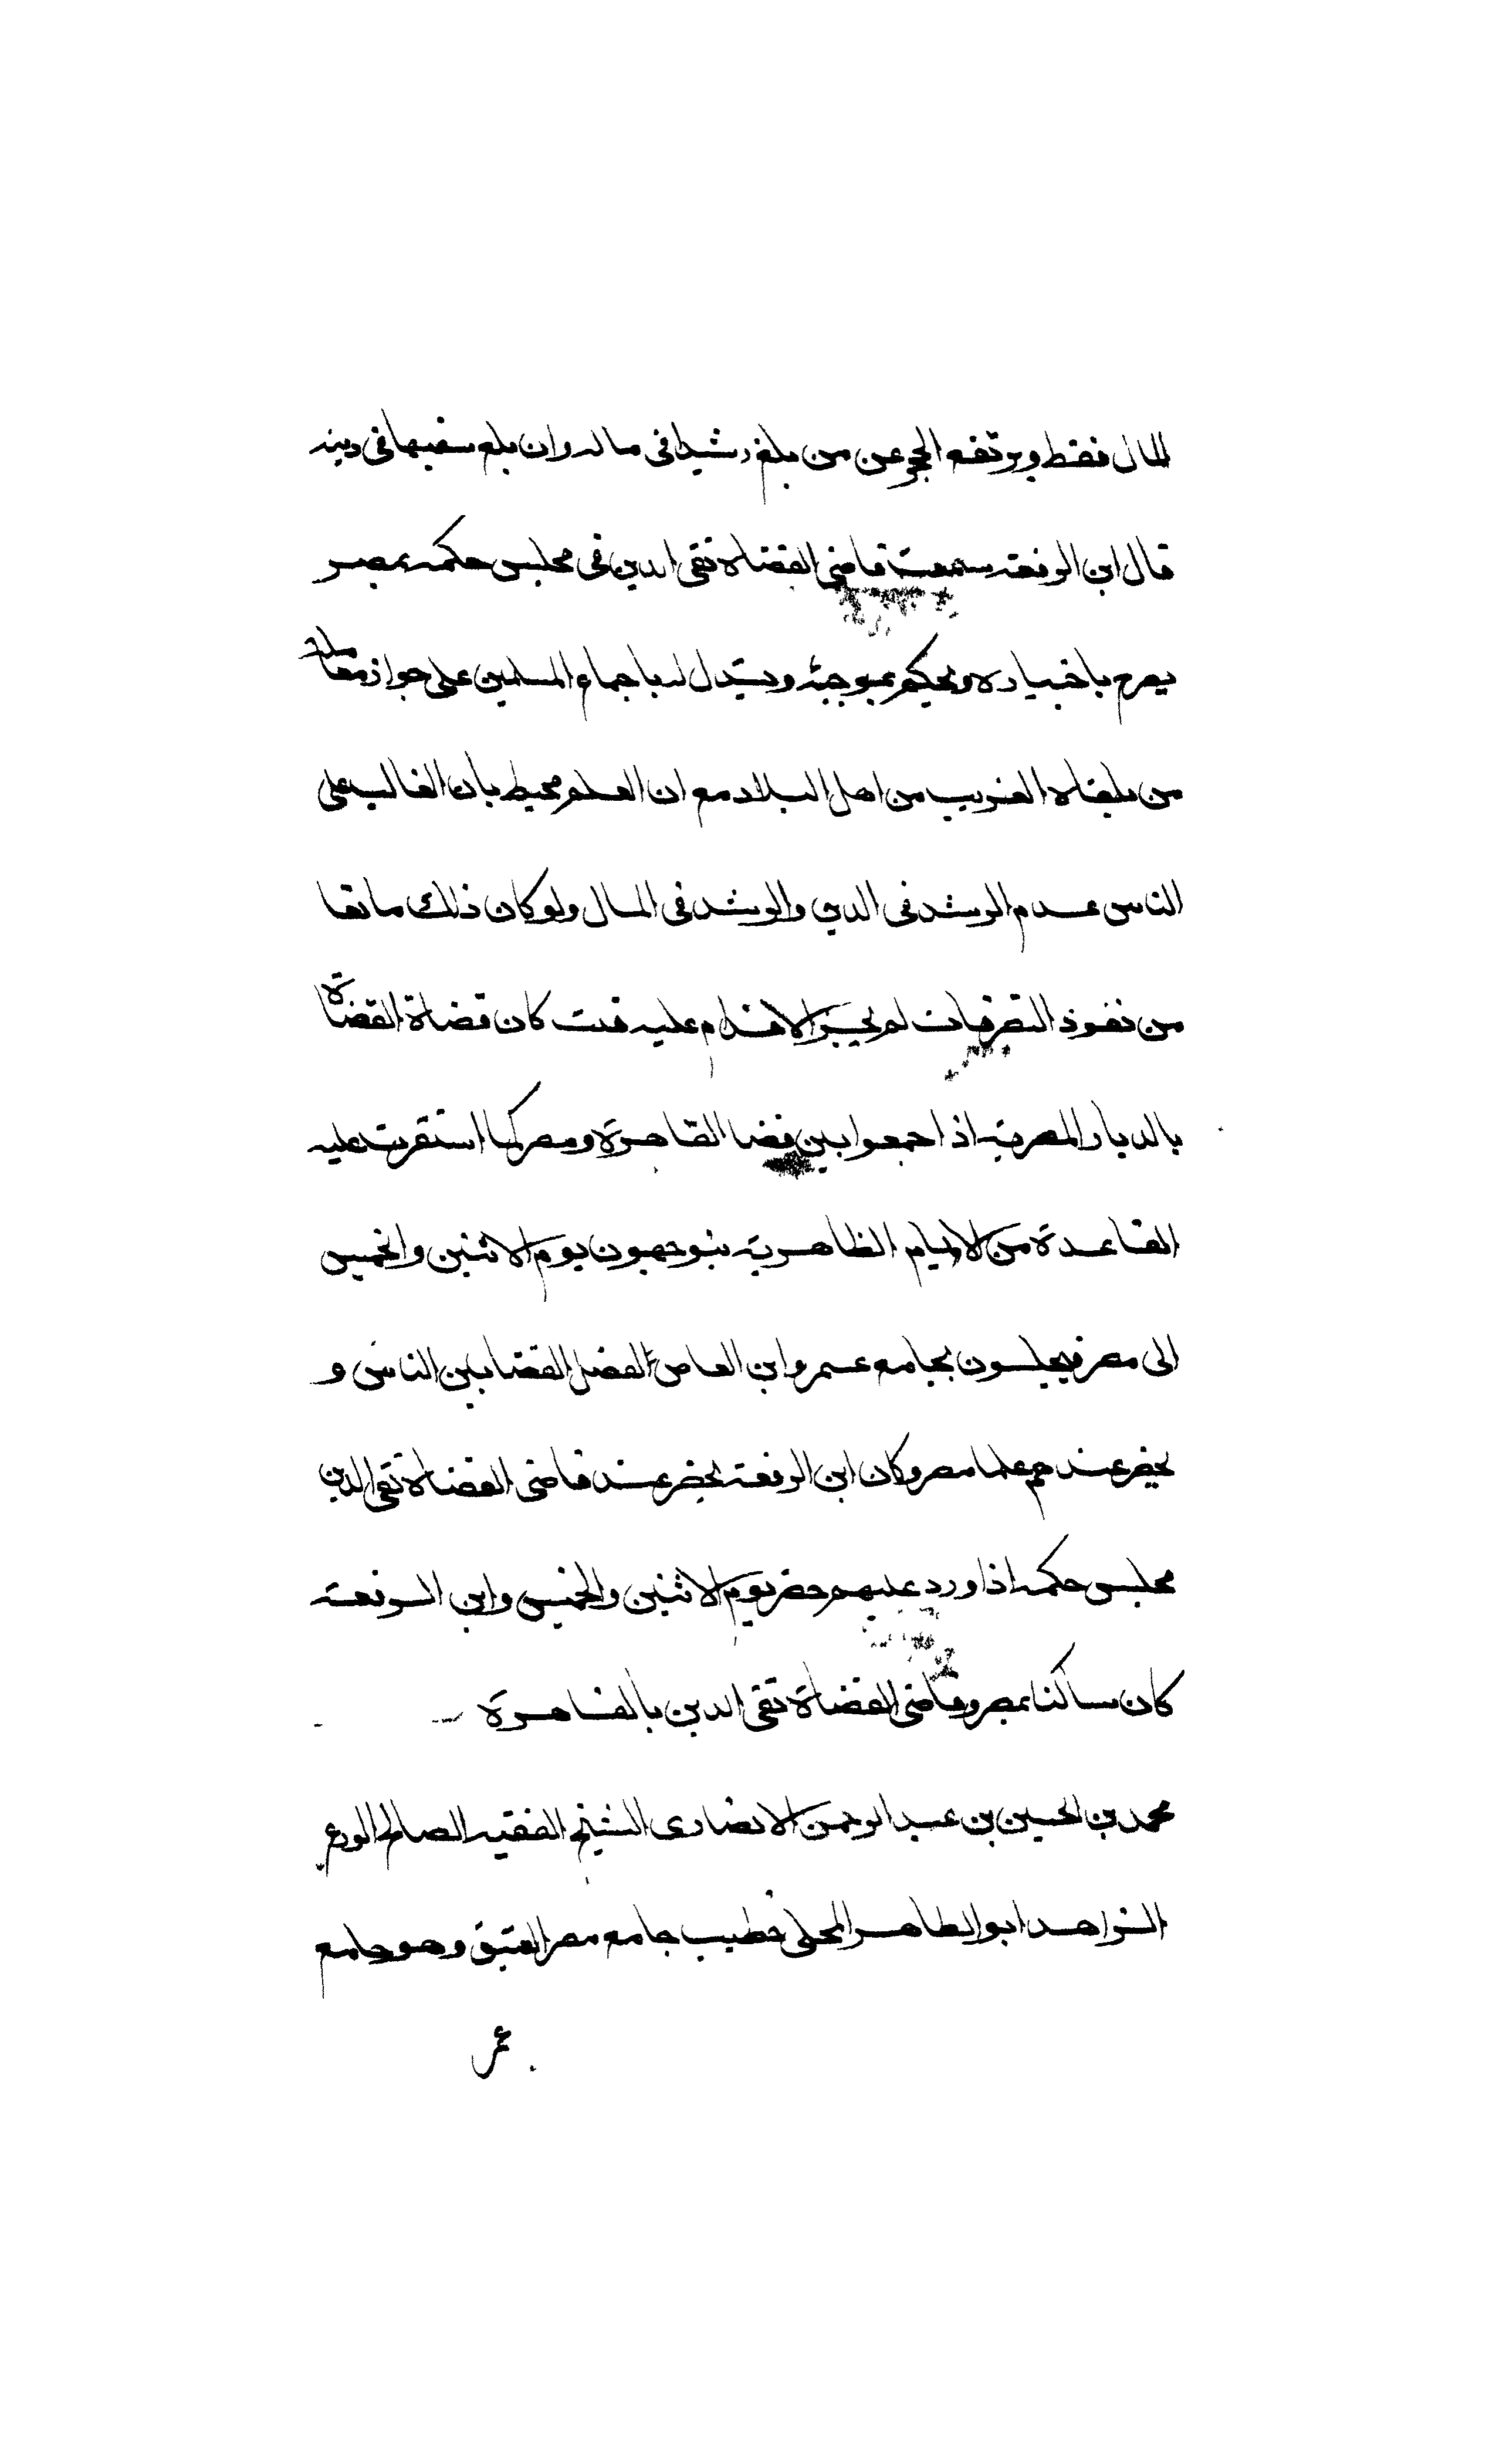 المال فقط ويرتفع الحجر عن من بلغ رشيدا في ماله وان بلغ سفيها في دينه
قال ابن الرفعة سمعت قاضي القضاة تقي الدين في مجلس حكمه بمصر
يصرح باختياره ويحكم بموجبه ويستدل له باجماع المسلمين على جواز معاملة
من يلقاه الغريب من اهل البلاد مع ان العلم محيط بان الغالب على
الناس عدم الرشد في الدين والرشد في المال ولو كان ذلك مانعا
من نفوذ التصرفات لم يجز الاقدام عليه قلت كان قضاة القضاة
بالديار المصرية اذا جمعوا بين قضا القاهرة ومصر كما استقرت عليه
القاعدة من الايام الظاهرية يتوجهون يوم الاثنين والخميس
الى مصر فيجلسون بجامع عمرو ابن العاص لفصل القضا بين الناس و
يحضر عندهم علما مصر وكان ابن الرفعة يحضر عند قاضي القضاة تقي الدين
مجلس حكمه اذا ورد عليهم حضر يوم الاثنين والخميس وابن الرفعة
كان ساكنا بمصر وقاضي القضاة تقي الدين بالقاهرة
محمد بن الحسين بن عبد الرحمن الانصاري الشيخ الفقيه الصالح الورع
الزاهد ابو الطاهر المحلي خطيب جامع مصر العتيق وهو جامع
عمر